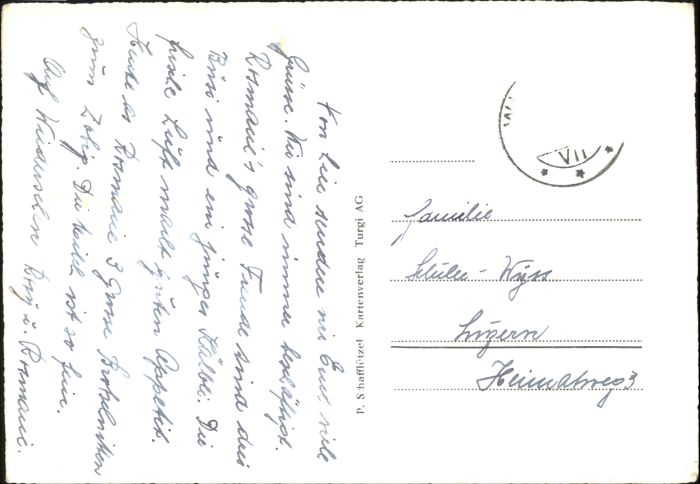 Von hier senden wir Euch viele
Grüsse. Wir sind immer beschäftigt.
Rosmarie's grosse Freude sind drei
Büsi und ein junges Kälbli. Die
frische Luft macht guten Appetit.
Heute ass Rosmarie 3 grosse Brotschnitten
zum Zobig. Die Milch ist so fein.
Auf Wiedersehen Rosy u. Rosmarie.
P. Schafflützel Kartenverlag Turgi AG
VII
Familie
Schuler - Wyss
Luzern
Heimatweg 3